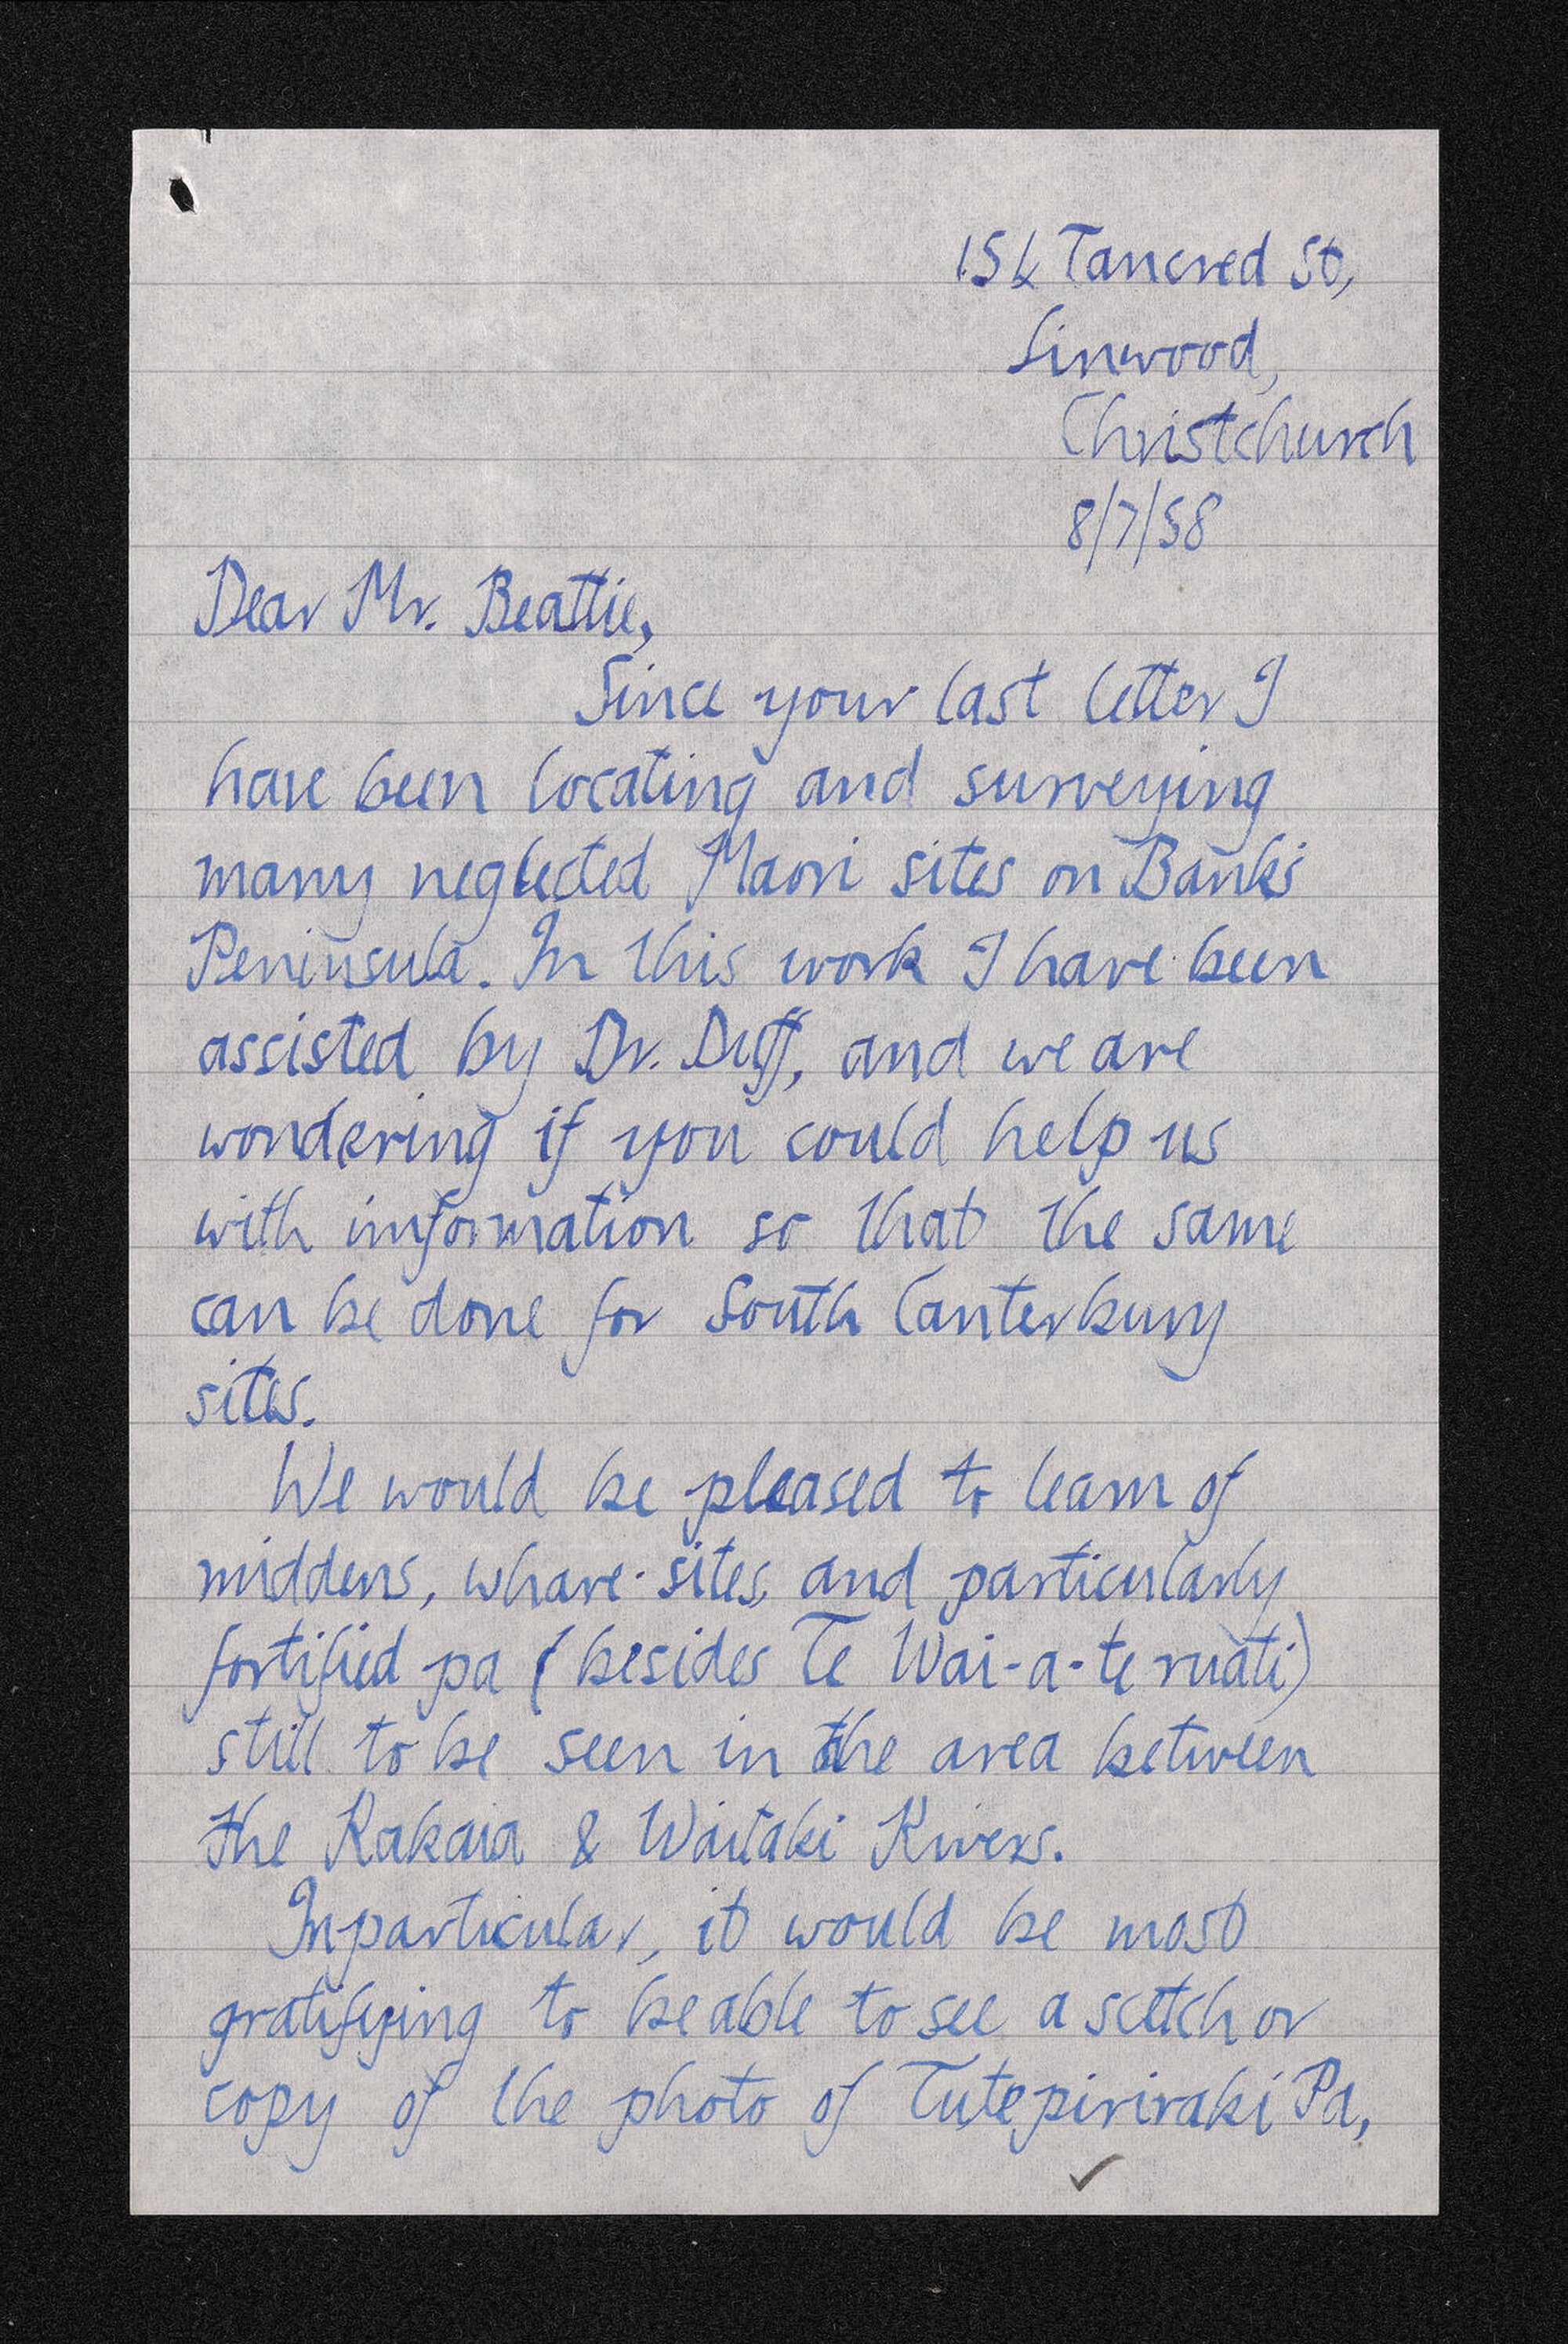 154 Tancred St,
Linwood,
Christchurch
8/7/58
Dear Mr. Beattie,
Since your last letter I
have been locating and surveying
many neglected Maori sites on Banks
Peninsula. In this work I have been
assisted by Dr. Duff, and we are
wondering if you could help us
with information so that the same
can be done for South Canterbury
sites.
We would be pleased to learn of
middens, whare-sites, and particularly
fortified pa (besides Te Wai-a-te ruati)
still to be seen in the area between
the Rakaia & Waitaki Rivers.
In particular, it would be most
gratifying to be able to see a scetch or
copy of the photo of Tutepiriraki Pa,
✓